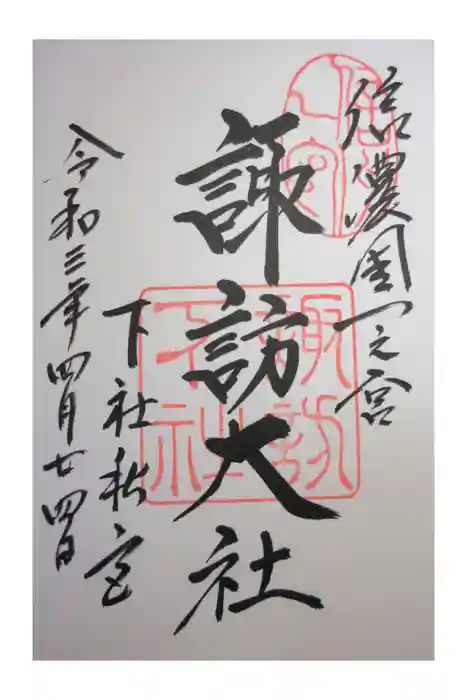 信濃國一之宮
諏訪大社
下社秋宮
令和三年四月廿四日
信濃
一宮
諏訪
下社